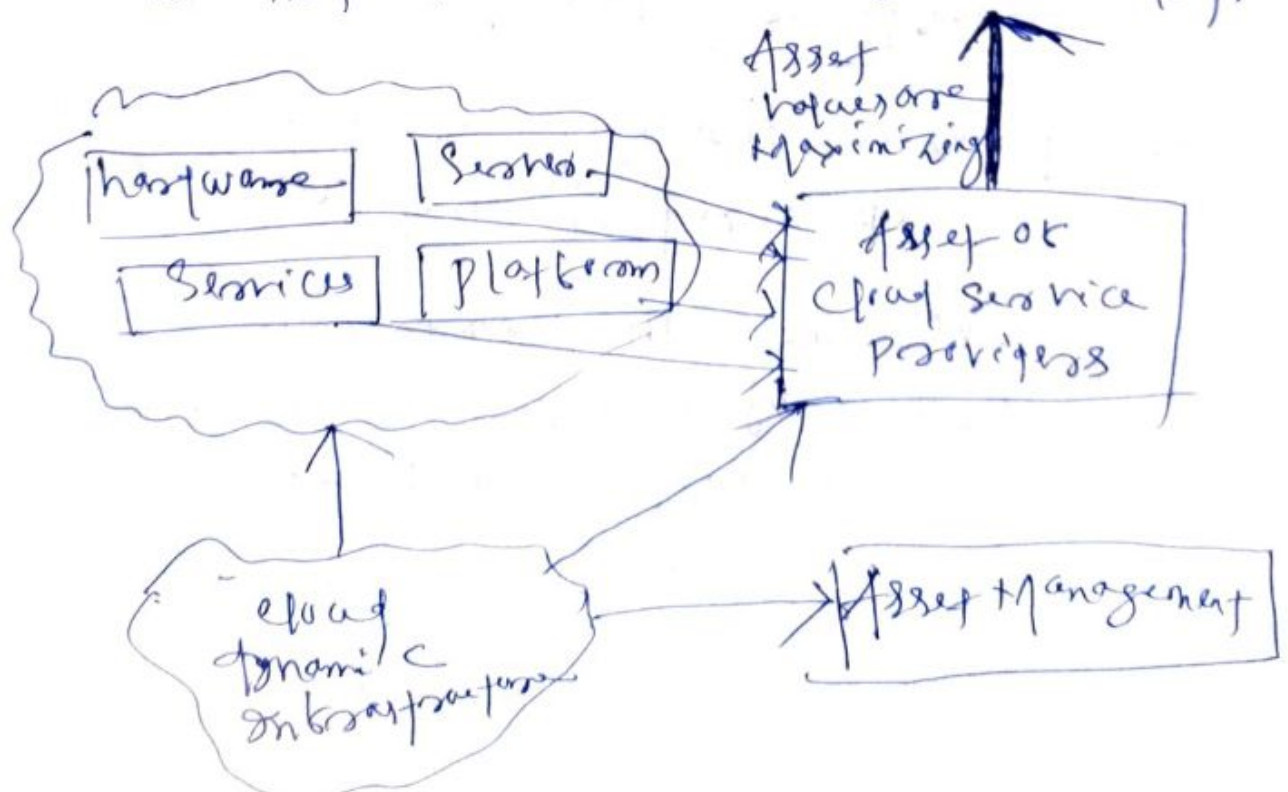 Asset
values are
Maximizing
hardware
Server
Services
Platform
Asset of
Cloud Service
Providers
cloud
dynamic
Infrastructure
Asset Management